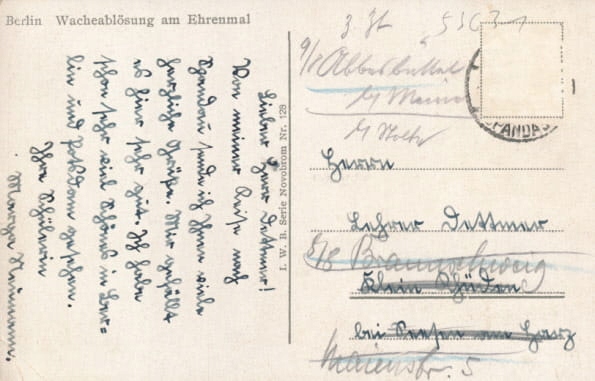 Berlin Wacheablösung am Ehrenmal
Lieber Herr Dettmer!
Von meiner Reise nach
Spandau sende ich Ihnen viele
herzliche Grüße. Mir gefällt
es hier sehr gut. Ich habe
schon sehr viel Schönes in Ber-
lin und Potsdam gesehen.
Ihre Schülerin
I. W. B. Serie Novobrom Nr. 128
z. Zt.
PANDA
Herrn
Lehrer Dettmer
Braunschweig
Klein Rhüden
bei Seesen am Harz
str. 5